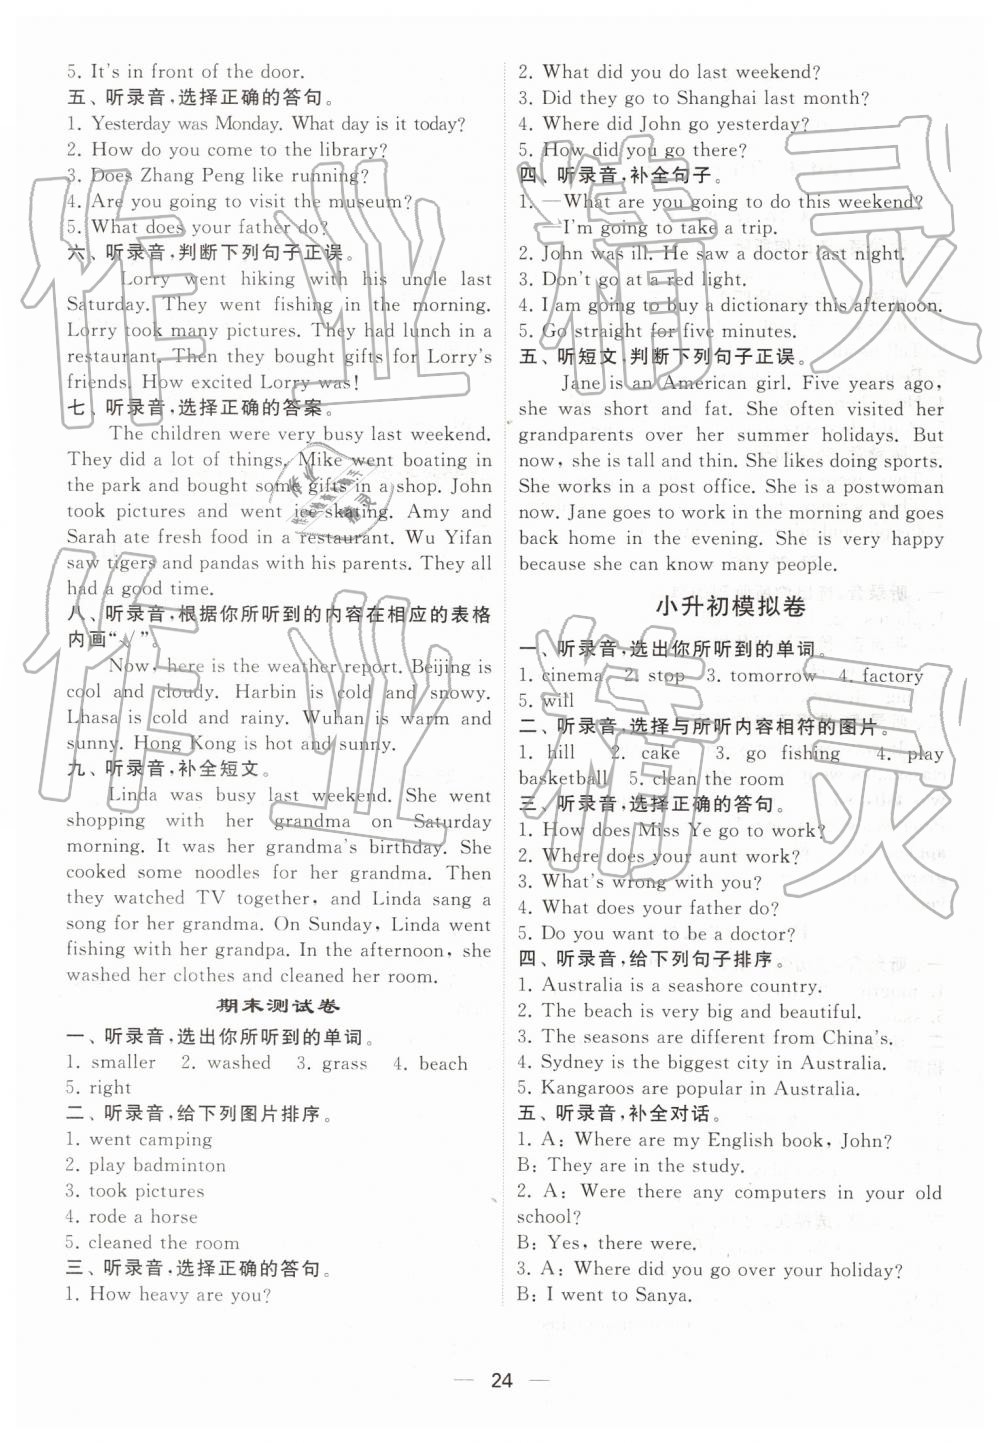 5. It's in front of the door.
五、听录音,选择正确的答句。
1. Yesterday was Monday. What day is it today?
2. How do you come to the library?
3. Does Zhang Peng like running?
4. Are you going to visit the museum?
5. What does your father do?
六、听录音,判断下列句子正误。
Lorry went hiking with his uncle last
Saturday. They went fishing in the morning.
Lorry took many pictures. They had lunch in a
restaurant. Then they bought gifts for Lorry's
friends. How excited Lorry was!
七、听录音,选择正确的答案。
The children were very busy last weekend.
They did a lot of things. Mike went boating in
the park and bought some gifts in a shop. John
took pictures and went ice-skating. Amy and
Sarah ate fresh food in a restaurant. Wu Yifan
saw tigers and pandas with his parents. They all
had a good time.
八、听录音,根据你所听到的内容在相应的表格
内画“√”。
Now, here is the weather report. Beijing is
cool and cloudy. Harbin is cold and snowy.
Lhasa is cold and rainy. Wuhan is warm and
sunny. Hong Kong is hot and sunny.
九、听录音,补全短文。
Linda was busy last weekend. She went
shopping with her grandma on Saturday
morning. It was her grandma's birthday. She
cooked some noodles for her grandma. Then
they watched TV together, and Linda sang a
song for her grandma. On Sunday, Linda went
fishing with her grandpa. In the afternoon, she
washed her clothes and cleaned her room.
期末测试卷
一、听录音,选出你所听到的单词。
1. smaller 2. washed 3. grass 4. beach
5. right
二、听录音,给下列图片排序。
1. went camping
2. play badminton
3. took pictures
4. rode a horse
5. cleaned the room
三、听录音,选择正确的答句。
1. How heavy are you?
2. What did you do last weekend?
3. Did they go to Shanghai last month?
4. Where did John go yesterday?
5. How did you go there?
四、听录音,补全句子。
1. —What are you going to do this weekend?
—I'm going to take a trip.
2. John was ill. He saw a doctor last night.
3. Don't go at a red light.
4. I am going to buy a dictionary this afternoon.
5. Go straight for five minutes.
五、听短文,判断下列句子正误。
Jane is an American girl. Five years ago,
she was short and fat. She often visited her
grandparents over her summer holidays. But
now, she is tall and thin. She likes doing sports.
She works in a post office. She is a postwoman
now. Jane goes to work in the morning and goes
back home in the evening. She is very happy
because she can know many people.
小升初模拟卷
一、听录音,选出你所听到的单词。
1. cinema 2. stop 3. tomorrow 4. factory
5. will
二、听录音,选择与所听内容相符的图片。
1. hill 2. cake 3. go fishing 4. play
basketball 5. clean the room
三、听录音,选择正确的答句。
1. How does Miss Ye go to work?
2. Where does your aunt work?
3. What's wrong with you?
4. What does your father do?
5. Do you want to be a doctor?
四、听录音,给下列句子排序。
1. Australia is a seashore country.
2. The beach is very big and beautiful.
3. The seasons are different from China's.
4. Sydney is the biggest city in Australia.
5. Kangaroos are popular in Australia.
五、听录音,补全对话。
1. A: Where are my English book, John?
B: They are in the study.
2. A: Were there any computers in your old
school?
B: Yes, there were.
3. A: Where did you go over your holiday?
B: I went to Sanya.
— 24 —
作业精灵
作业精灵